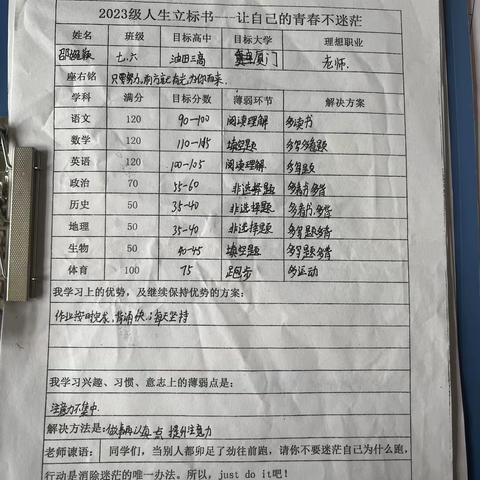 2023级人生立标书---让自己的青春不迷茫
姓名 班级 目标高中 目标大学 理想职业
七.六 油田三高 厦门 老师.
座右铭 只要努力,前方就有光为你而来.
学科 满分 目标分数 薄弱环节 解决方案
语文 120 90-100 阅读理解 多读书
数学 120 110-115 填空题 多写多看题
英语 120 100-105 阅读理解. 多写题
政治 70 55-60 非选择题 多看书多背
历史 50 35-40 非选择题 多看书.多背
地理 50 35-40 非选择题 多写题多背
生物 50 40-45 填空题 多写题多背
体育 100 75 跑步 多运动
我学习上的优势,及继续保持优势的方案:
作业按时完成.背诵快.;每天坚持
我学习兴趣、习惯、意志上的薄弱点是:
注意力不集中.
解决方法是:做事再认真点 提升注意力
老师谏语: 同学们,当别人都卯足了劲往前跑,请你不要迷茫自己为什么跑,
行动是消除迷茫的唯一办法。所以,just do it吧!